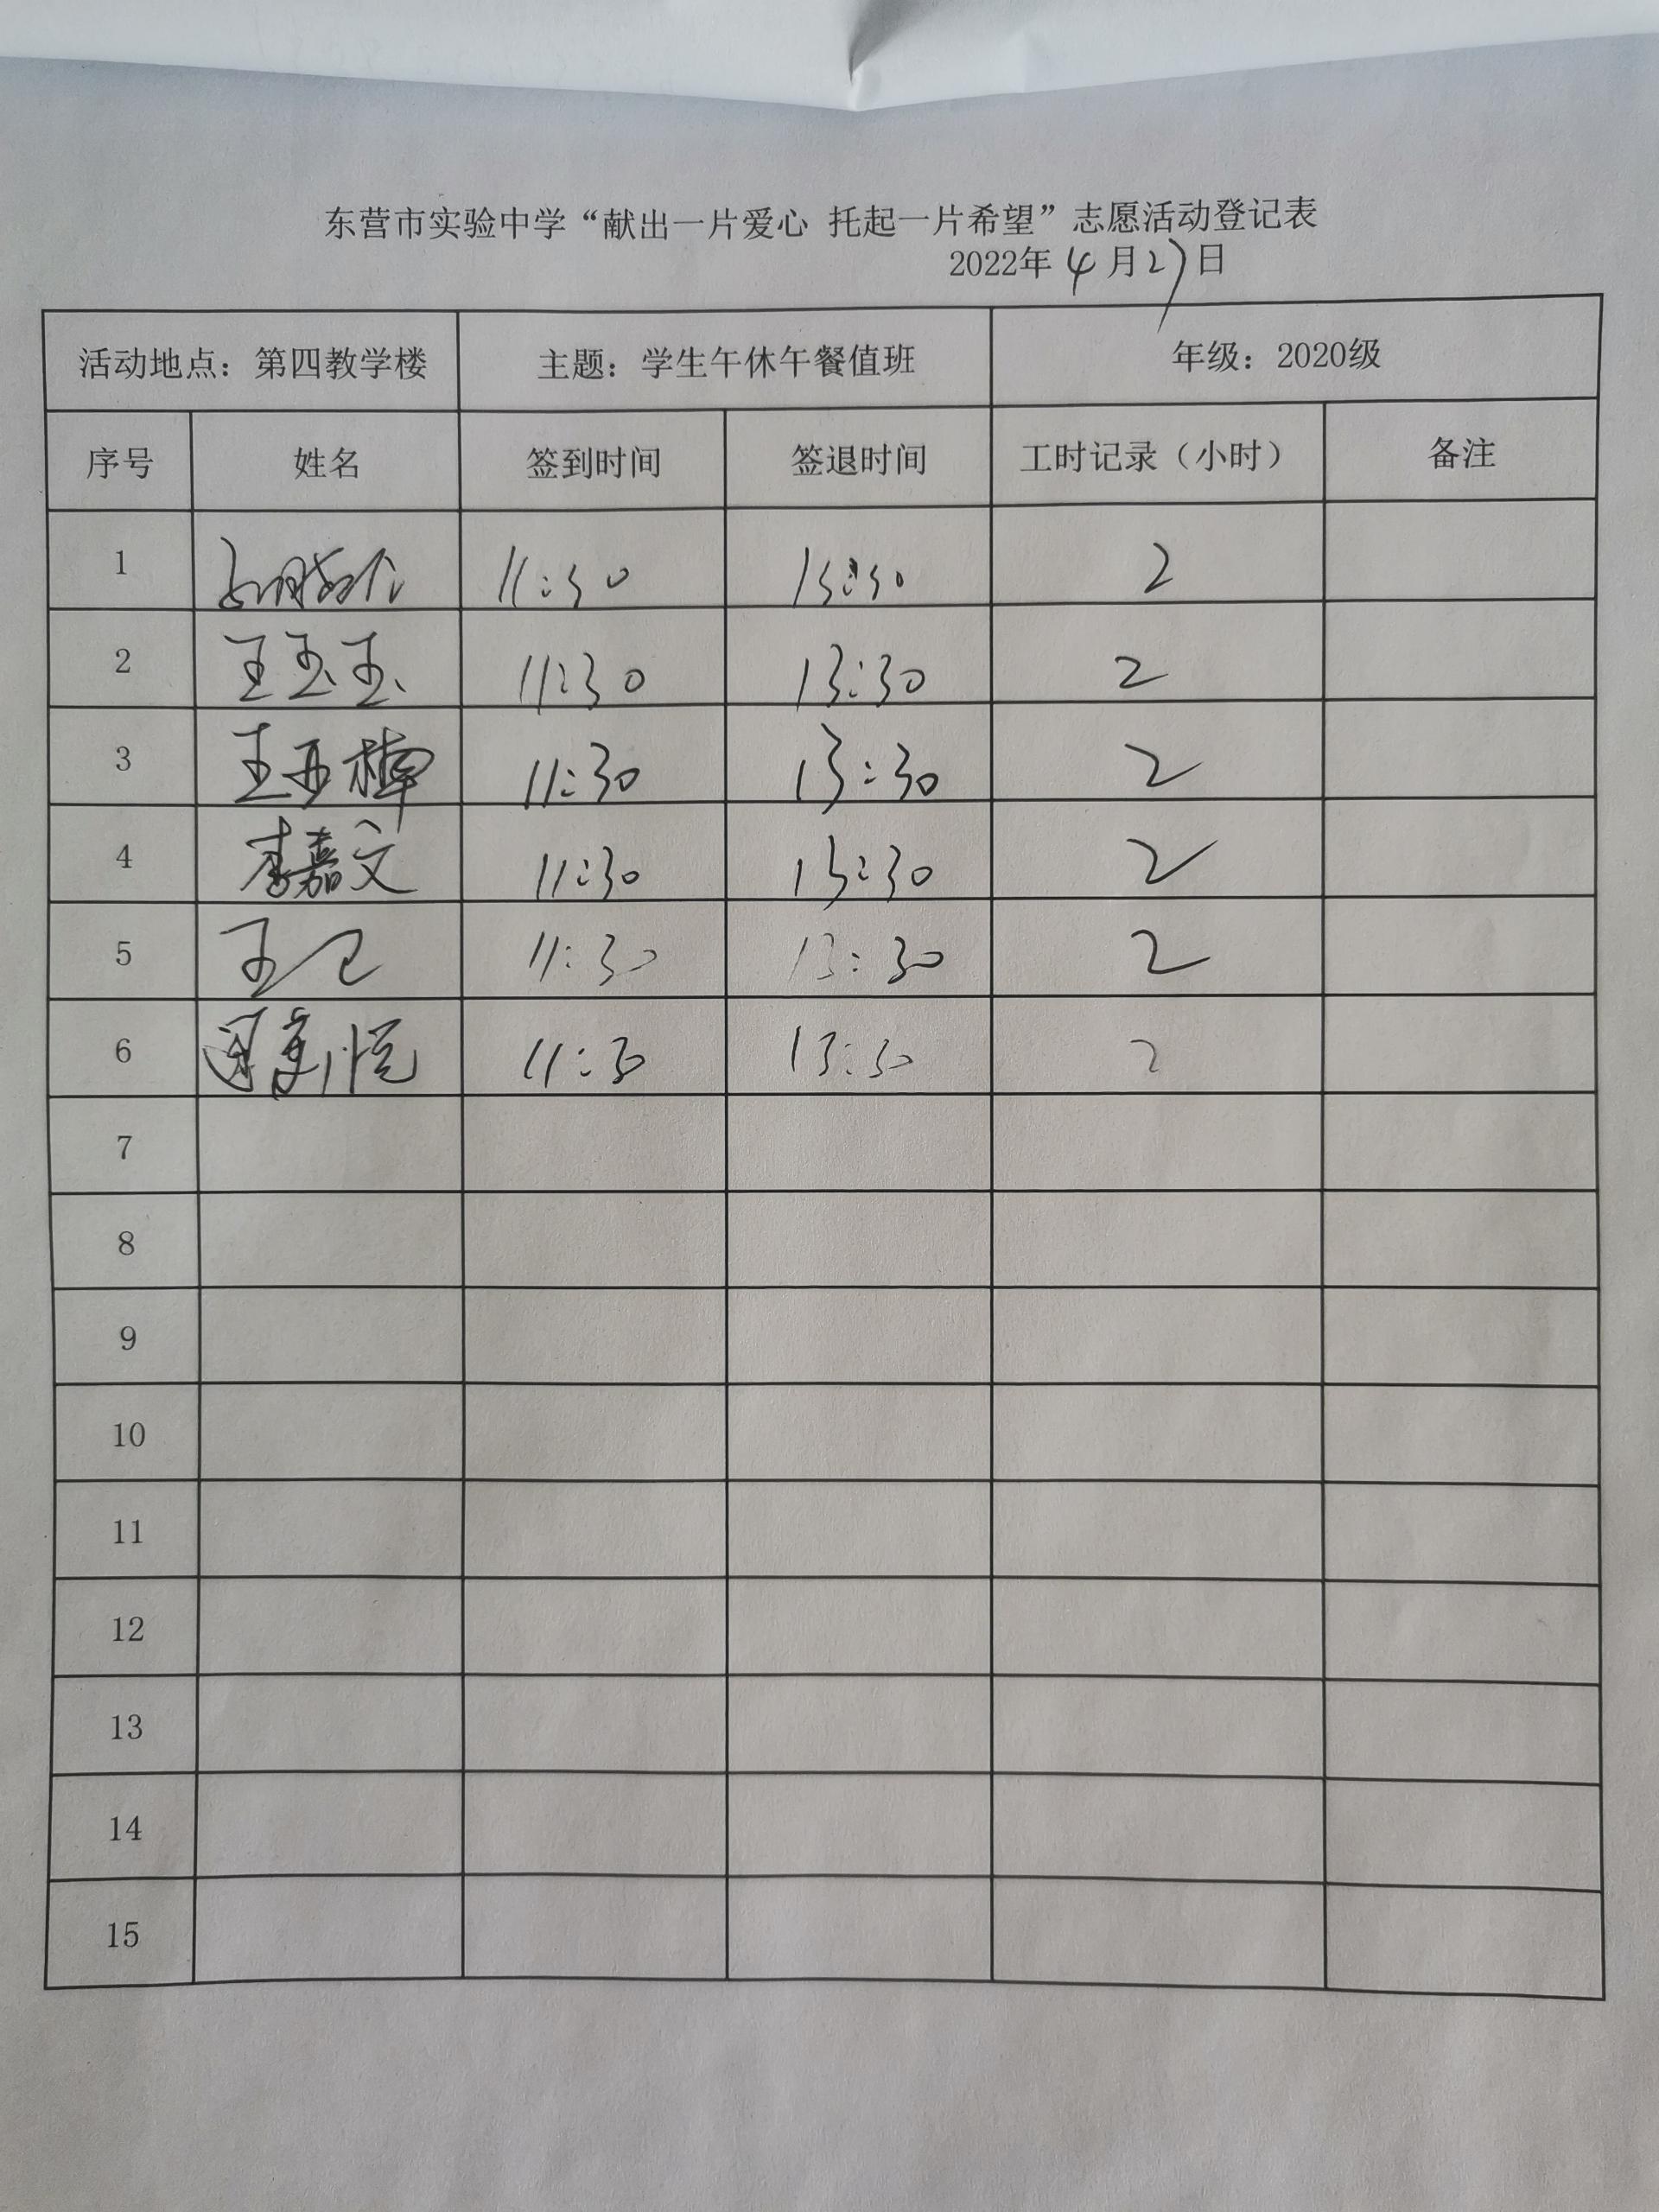 东营市实验中学“献出一片爱心 托起一片希望”志愿活动登记表
2022年4月27日
活动地点：第四教学楼 主题：学生午休午餐值班 年级：2020级
序号 姓名 签到时间 签退时间 工时记录（小时） 备注
1 11:30 13:30 2
2 王玉玉 11:30 13:30 2
3 王亚楠 11:30 13:30 2
4 李嘉文 11:30 13:30 2
5 王 11:30 13:30 2
6 11:30 13:30 2
7
8
9
10
11
12
13
14
15